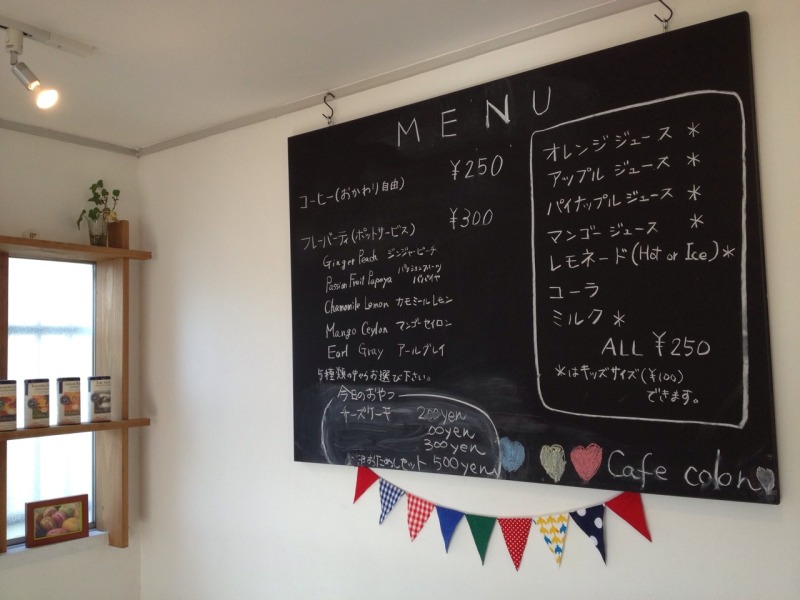 MENU
コーヒー(おかわり自由) ¥250
フレーバーティ(ポットサービス) ¥300
Ginger Peach ジンジャーピーチ
Passion Fruit Papaya パッションフルーツ パパイヤ
Chamomile Lemon カモミールレモン
Mango Ceylon マンゴーセイロン
Earl Gray アールグレイ
5種類の中からお選び下さい。
今日のおやつ
チーズケーキ 200yen
00yen
300yen
おためしセット 500yen
オレンジジュース *
アップルジュース *
パイナップルジュース *
マンゴージュース *
レモネード(Hot or Ice) *
コーラ
ミルク *
ALL ¥250
*はキッズサイズ(¥100)
できます。
Cafe colon